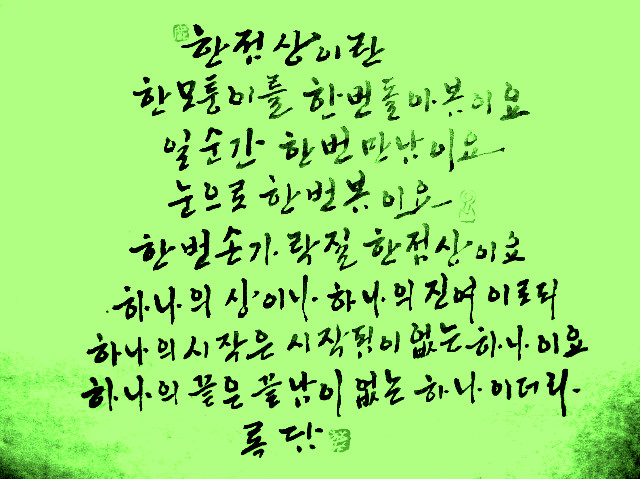 한점상이란
한모퉁이를 한번돌아봄이요
일순간 한번만남이요
눈으로 한번봄이요
한번손가락질 한점상이요
하나의 상이니 하나의 진여이로되
하나의시작은 시작됨이없는 하나이요
하나의 끝은 끝남이 없는 하나이더라
록담